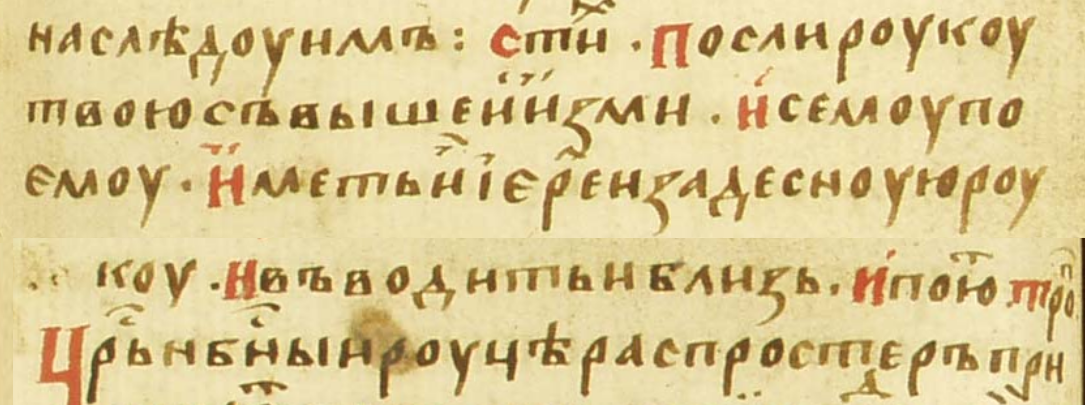 наслѣдоуимъ: сти҃. Посли роукоу
твою съвышениизми. исемоупо
емоу. Иметьниіереизадесноуюроу
коу. Ивъводитьиблизь. Ипою тро
Црьнбныироуцѣраспростеръпри